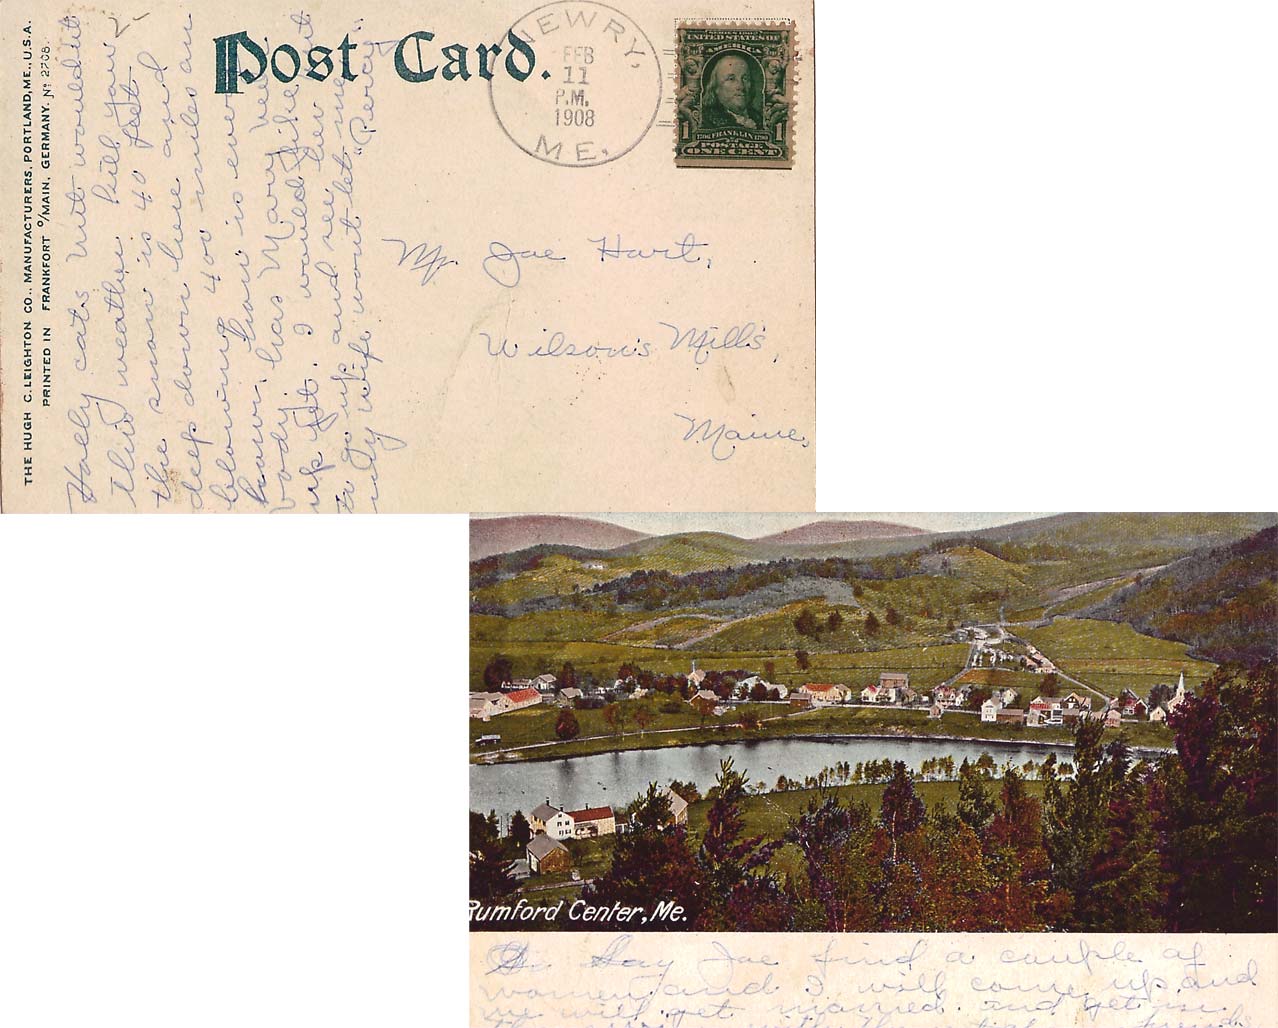 THE HUGH C. LEIGHTON CO., MANUFACTURERS, PORTLAND, ME., U.S.A.
PRINTED IN FRANKFORT O/MAIN, GERMANY. No 2708.
Post Card.
NEWRY,
FEB
11
P.M.
1908
ME.
SERIES 1902
UNITED STATES OF
AMERICA
1706 FRANKLIN 1790
1 POSTAGE
ONE CENT
Holly cats but wouldnt
this weather kill you
the snow is 40 feet
deep down here and
blowing 400 miles an
hour, how is every
body. has Mary
up yet. I would like
to go up and see her but
my wife wont let me
"Percy"
Mr. Joe Hart,
Wilson's Mills,
Maine,
Rumford Center, Me.
Say Joe find a couple of
women and I will come up and
we will get married. and get